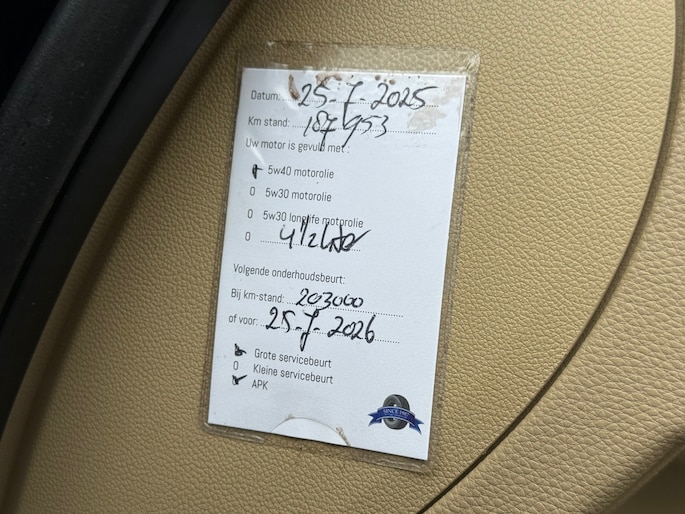 Datum: 25-7-2025
Km stand: 187953
Uw motor is gevuld met :
5w40 motorolie
O 5w30 motorolie
O 5w30 longlife motorolie
O 4 1/2 liter
Volgende onderhoudsbeurt:
Bij km-stand: 203000
of voor: 25-7-2026
Grote servicebeurt
O Kleine servicebeurt
APK
SINCE